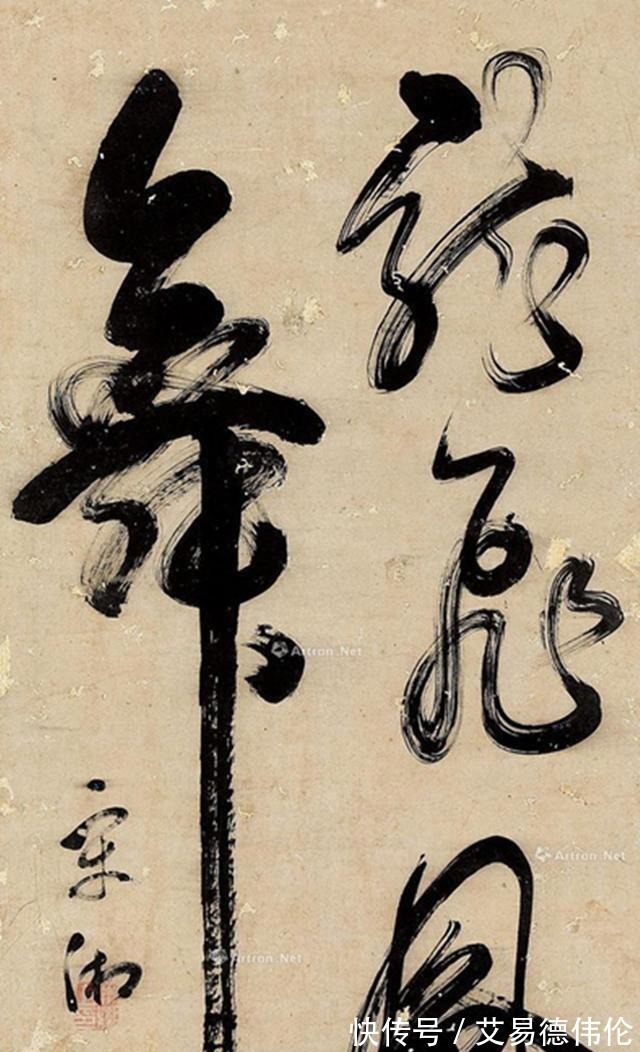 龍飛鳳
舞
宋湘
Artron.Net
Artron.Net
Artron.Net
快传号 / 艾易德伟伦